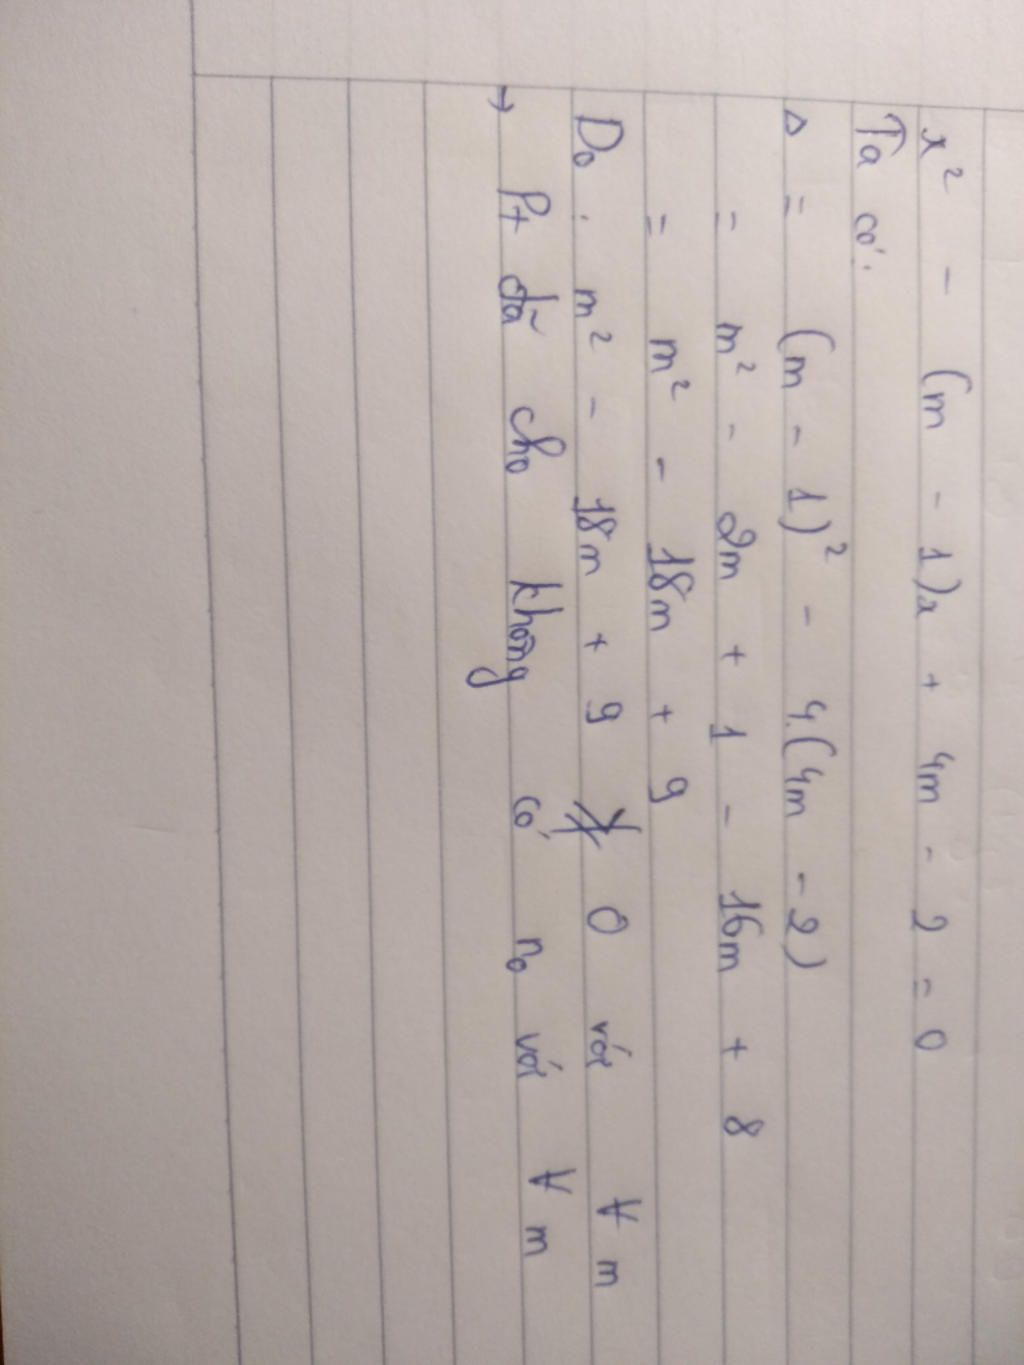 x² - (m - 1)x + 4m - 2 = 0
Ta có:
Δ = (m - 1)² - 4.(4m - 2)
= m² - 2m + 1 - 16m + 8
= m² - 18m + 9
Do: m² - 18m + 9 ≯ 0 với ∀ m
→ Pt đã cho không có no với ∀ m